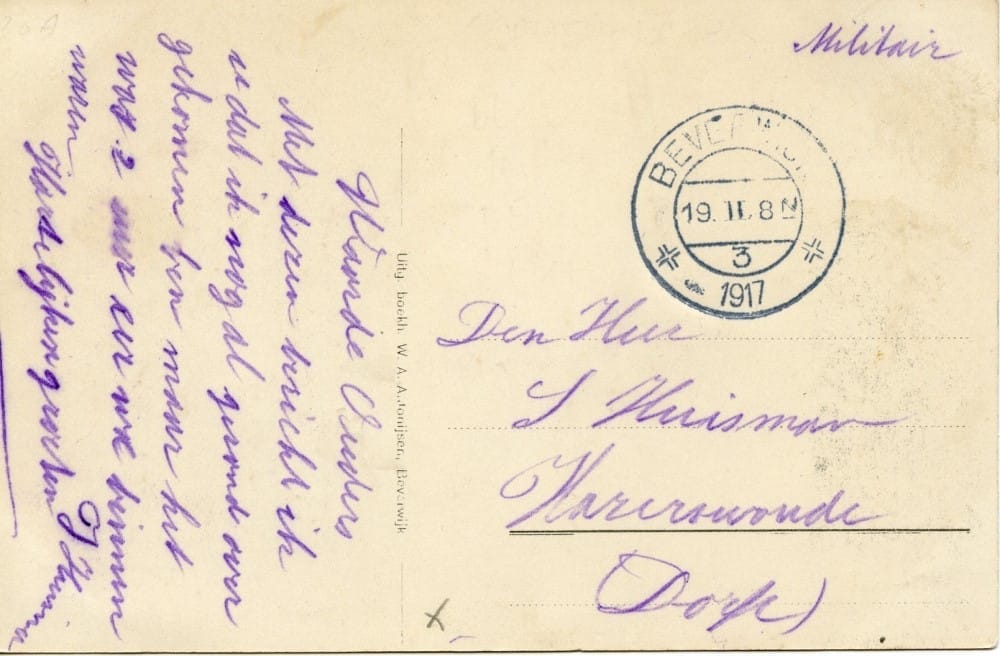 Militair
BEVERWIJK
19. II. 8 N
3
1917
Waarde Ouders
Met dezen bericht ik
u dat ik nog al gezond over
gekomen ben maar het
was 2 uur eer we binnen
waren
Hartelijk gegroeten
Uitg. boekh. W. A. A. Jonijser, Beverwijk
Den Heer
S Huisman
Hazerswoude
(Dorp)
x